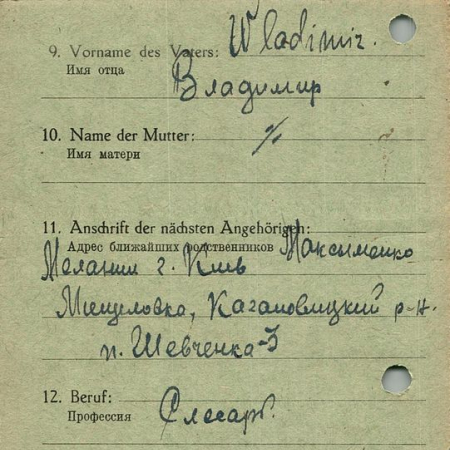 9. Vorname des Vaters: Wladimir.
Имя отца
Владимир
10. Name der Mutter: %
Имя матери
11. Anschrift der nächsten Angehörigen:
Адрес ближайших родственников Максыменко
Мелании г. Киев
Мышеловка, Кагановицкий р-н.
п. Шевченка-3
12. Beruf:
Профессия Слесарь.